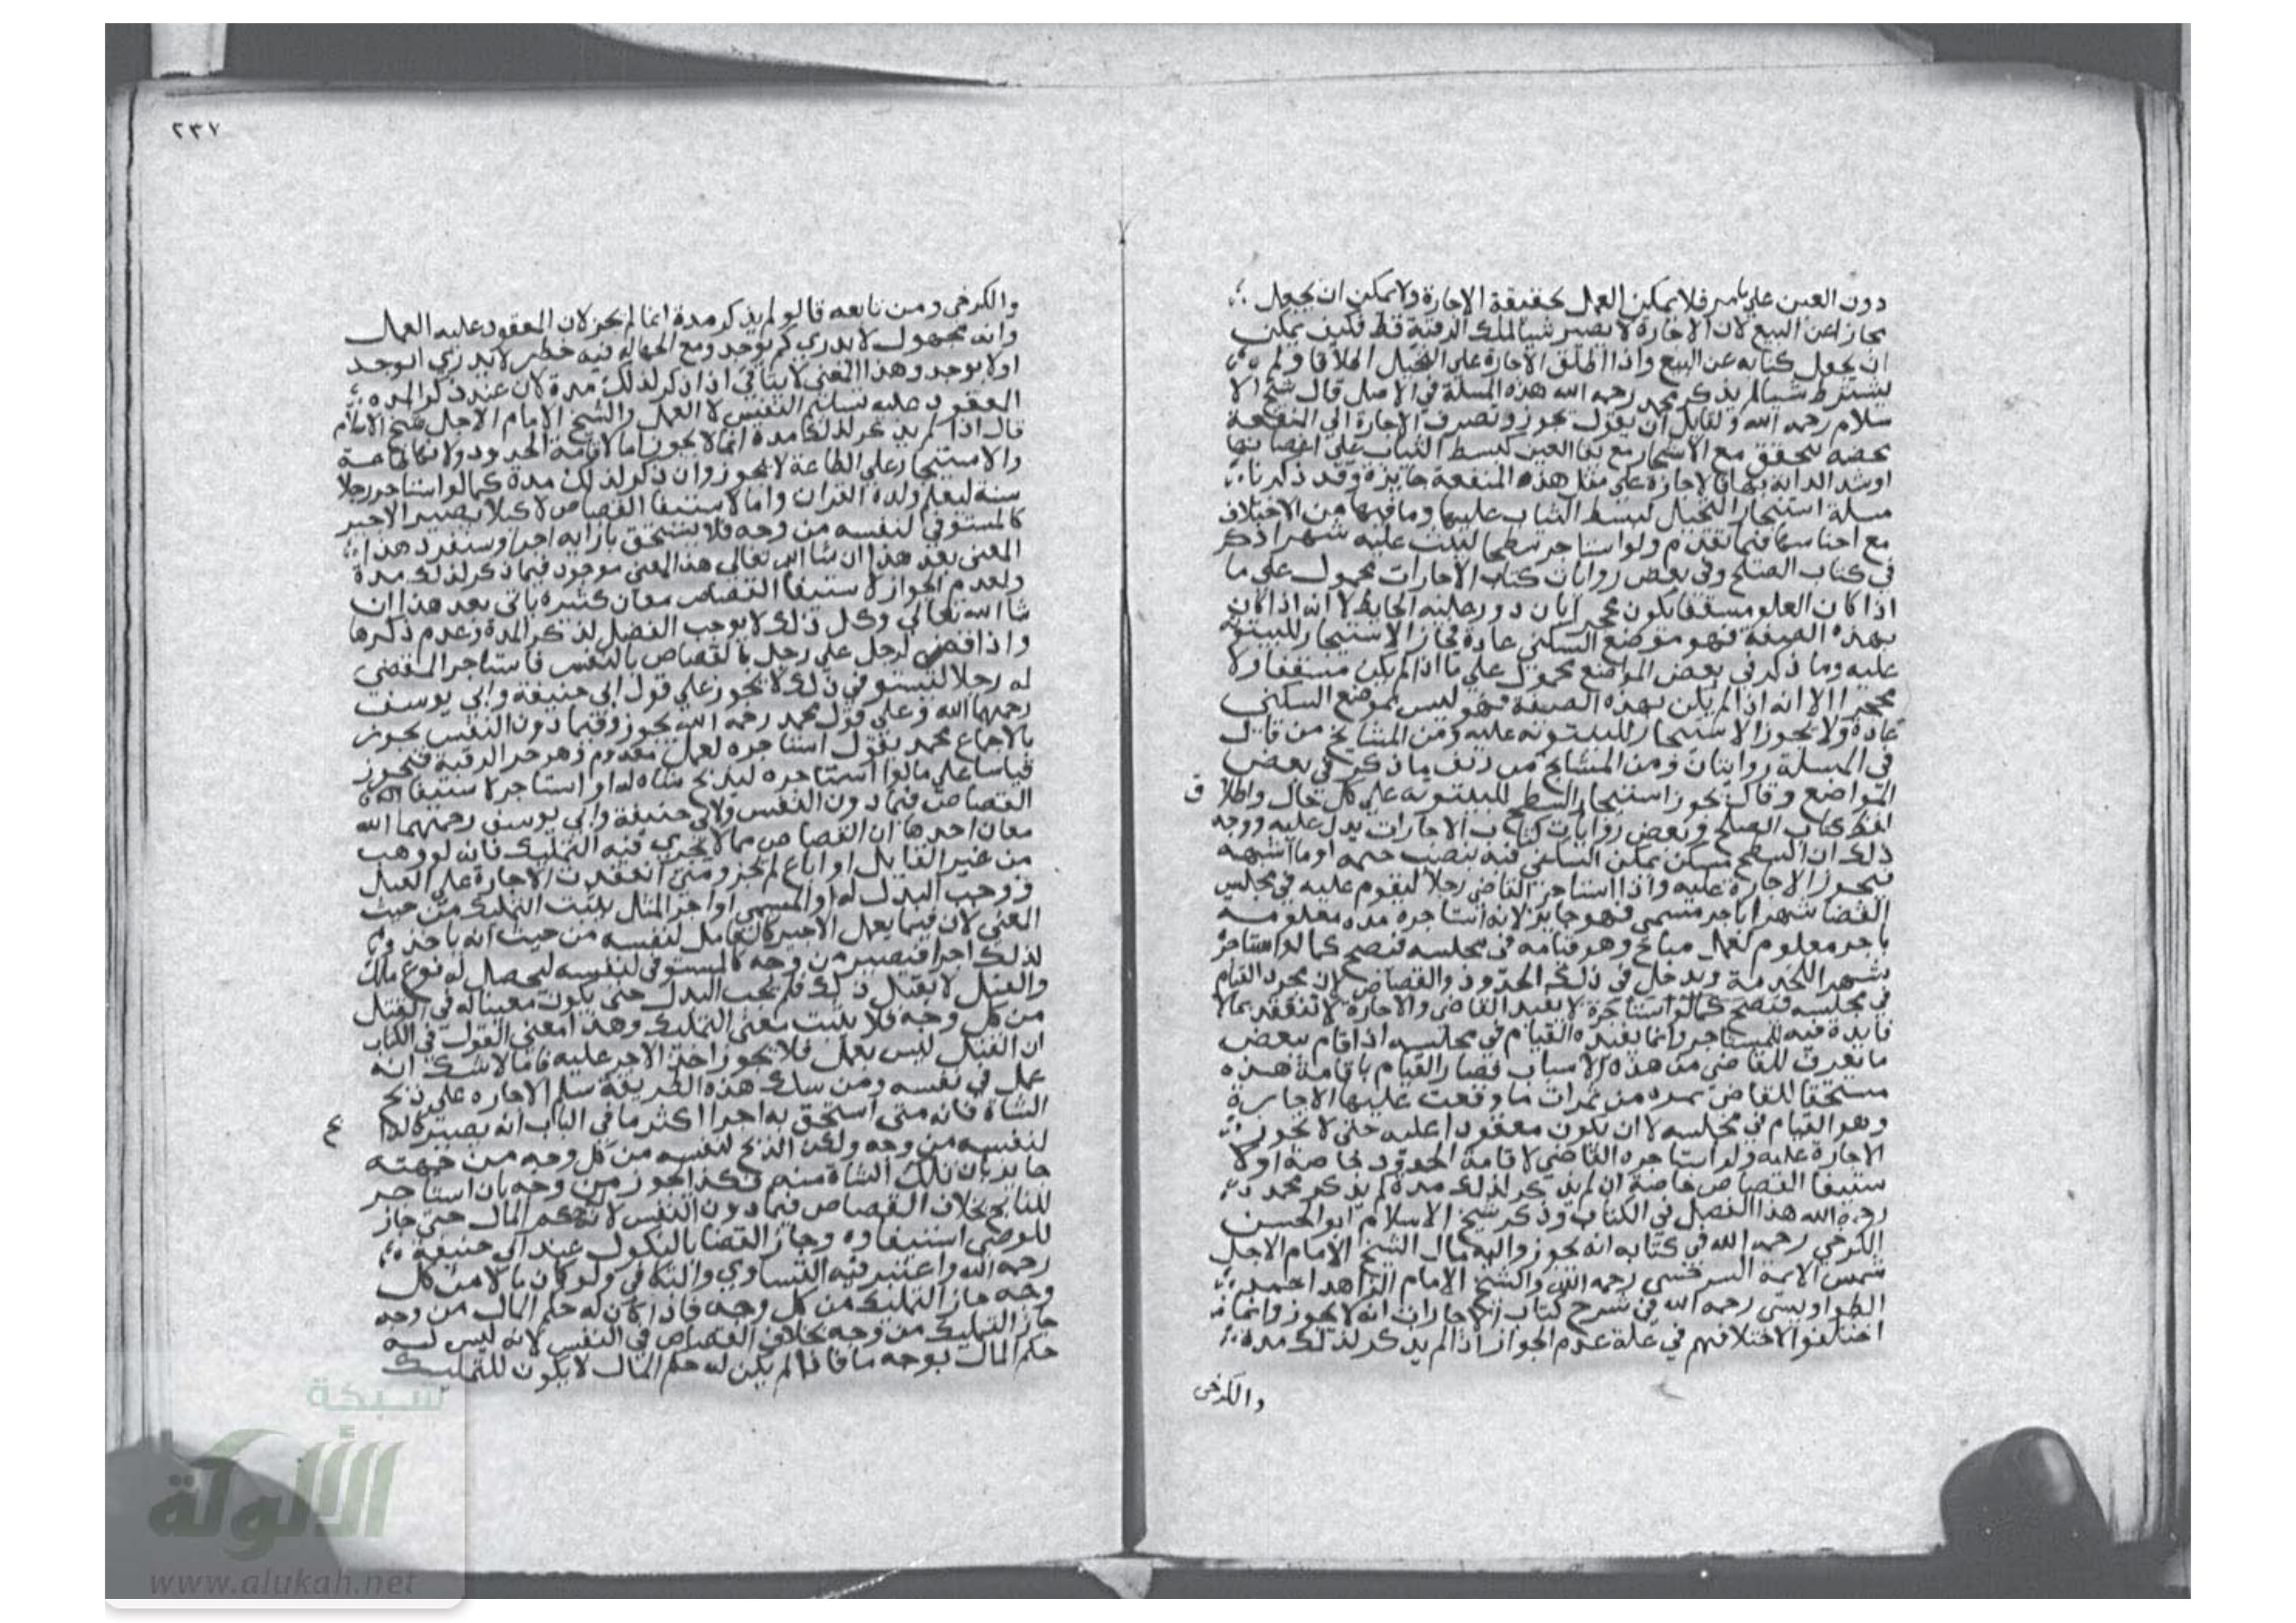 دون العين علي ما مر فلا يمكن العمل بحقيقة الاجارة ولا يمكن ان يجعل
مجازا عن البيع لان الاجارة لا يصير سببا لملك الرقبة قط فكيف يمكن
ان يجعل كناية عن البيع واذا اطلق الاجارة علي النخيل اطلاقا ولم
يشترط شيا لم يذكر محمد رحمه الله هذه المسلة في الاصل قال شيخ الا
سلام رحمه الله ولقايل ان يقول يجوز وتصرف الاجارة الي المنفعة
تحقق مع الاشجار مع بقا العين كبسط الثياب علي اغصانها
او شد الدابة بها فالاجارة علي مثل هذه المنفعة جايزة وقد ذكرنا
مسلة استيجار النخيل ليبسط الثياب عليها وما فيها من الاختلاف
مع اجناسها فيما تقدم ولو استاجر سطحا ليبيت عليه شهرا ذكر
في كتاب الصلح وفي بعض روايات كتاب الاجارات محمول علي ما
اذا كان العلو مسقفا يكون محجرا بان دور عليه الحايط لانه اذا كان
بهذه الصفة فهو موضع السكني عادة فجاز الاستيجار للبيتوتة
عليه وما ذكر في بعض المواضع محمول علي ما اذا لم يكن مسقفا ولا
محجرا الا انه اذا لم يكن بهذه الصفة فهو ليس بموضع السكني
عادة ولا يجوز الاستيجار للبيتوتة عليه ومن المشايخ من قال
في المسلة روايتان ومن المشايخ من زيف ما ذكر في بعض
المواضع وقال يجوز استيجار السطح للبيتوتة علي كل حال واطلا ق
لفظ كتاب الصلح وبعض روايات كتاب الاجارات يدل عليه ووجه
ذلك ان السطح مسكن يمكن السكني فيه بنصب خيمة او ما اشبهه
فيجوز الاجارة عليه واذا استاجر القاضي رجلا ليقوم عليه في مجلس
القضا شهرا باجر مسمي فهو جايز لانه استاجره مدة معلومة
باجر معلوم لعمل مباح وهو قيامه في مجلسه فيصح كما لو استاجره
شهرا للخدمة ويدخل في ذلك الحدود والقصاص لان مجرد القيام
في مجلسه لا يفيد القاضي والاجارة لا تنعقد بما لا
فايدة فيه للمستاجر وانما يفيده القيام في مجلسه اذا قام ببعض
ما تعرف للقاضي من هذه الاسباب فصار القيام باقامة هذه
مستحقا للقاضي ثمرة من ثمرات ما وقعت عليها الاجارة
وهو القيام في مجلسه لا ان يكون معقودا عليه حتي لا يجوز
الاجارة عليه ولو استاجره القاضي لاقامة الحدود خاصة او لا
ستيفا القصاص خاصة ان لم يذكر لذلك مدة لم يذكر محمد
رحمه الله هذا الفصل في الكتاب وذكر شيخ الاسلام ابو الحسن
الكرخي رحمه الله في كتابه انه يجوز واليه مال الشيخ الامام الاجل
شمس الايمة السرخسي رحمه الله والشيخ الامام الزاهد احمد
الطواويسي رحمه الله في شرح كتاب الاجارات انه لا يجوز وانما
اختلفوا لاختلافهم في علة عدم الجواز اذا لم يذكر لذلك مدة
والكرخي
٢٣٧
والكرخي ومن تابعه قالو لم يذكر مدة انما لم يجز لان المعقود عليه العمل
وانه مجهول لا يدري كم يوجد ومع الجهالة فيه خطر لا يدري ايوجد
او لا يوجد وهذا المعني لا يتاتي اذا ذكر لذلك مدة لان عند ذكر المدة
المعقود عليه تسليم النفس لا العمل والشيخ الامام الاجل شيخ الاسلام
قال اذا لم يذكر لذلك مدة انما لا يجوز اما لاقامة الحدود ولانها طاعة
والاستيجار علي الطاعة لا يجوز وان ذكر لذلك مدة كما لو استاجر رجلا
سنة ليعلم ولده القران واما لاستيفا القصاص لا كيلا يصير الاجير
كالمستوفي لنفسه من وجه فلا يستحق بازايه اجرا وسنقرر هذا
المعني بعد هذا ان شا الله تعالي هذا المعني موجود فيما ذكر لذلك مدة
ولعدم الجواز لاستيفا القصاص معان كثيرة ياتي بعد هذا ان
شا الله تعالي وكل ذلك لا يوجب الفصل لذكر المدة وعدم ذكرها
واذا قضي لرجل علي رجل بالقصاص بالنفس فاستاجر المقضي
له رجلا ليستوفي ذلك لا يجوز علي قول ابي حنيفة وابي يوسف
رحمهما الله وعلي قول محمد رحمه الله يجوز وفيما دون النفس يجوز
بالاجماع محمد يقول استاجره لعمل معلوم وهو حز الرقبة فيجوز
قياسا علي ما لو استاجره ليذبح شاة له او استاجر لاستيفا
القصاص فيما دون النفس ولابي حنيفة وابي يوسف رحمهما الله
معان احدها ان القصاص مما لا يجري فيه التمليك فانه لو وهب
من غير القاتل او اباع لم يجز ومتي انعقدت الاجارة علي القتل
ووجب البدل له او المسمي او اجر المثل يثبت التمليك من حيث
المعني لان فيما يعمل الاجير كالعامل لنفسه من حيث انه ياخذ
لذلك اجرا فيصير من وجه كالمستوفي لنفسه ليحصل له نوع ملك
والقتل لا يقبل ذلك فلم يجب البدل حتي يكون معيناله في القتل
من كل وجه فلا يثبت معني التمليك وهذا معني القول في الكتاب
ان القتل ليس بعمل فلا يجوز اخذ الاجر عليه فاما لا شك انه
عمل في نفسه ومن سلك هذه الطريقة سلم الاجارة علي ذبح
الشاة فانه متي استحق به اجرا اكثر ما في الباب انه يصير
لنفسه من وجه ولكن الذبح لنفسه من كل وجه من جهته
جايز بان تلك الشاة منه فكذا يجوز من وجه بان استاجر
بخلاف القصاص فيما دون النفس لانه حكم المال حتي جاز
للوصي استيفاوه وجاز القضا بالنكول عند ابي حنيفة
رحمه الله واعتبر فيه التساوي والتكافي ولو كان مالا من كل
وجه جاز التمليك من كل وجه فاذا كان له حكم المال من وجه
جاز التمليك من وجه بخلاف القصاص في النفس لانه ليس له
حكم المال بوجه ما فاذا لم يكن له حكم المال لا يكون للتمليك
شبكة
الألوكة
www.alukah.net